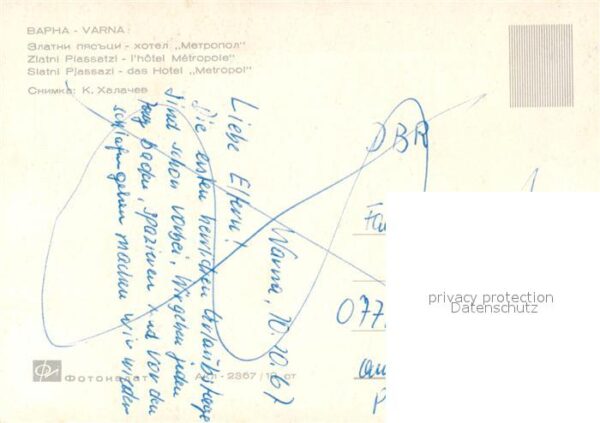 ВАРНА - VARNA:
Златни пясъци - хотел „Метропол"
Zlatni Piassatzi - l'hôtel Métropole"
Slatni Pjassazi - das Hotel „Metropol"
Снимка: К. Халачев
Warna, 10.10.67
Liebe Eltern!
Die ersten herrlichen Urlaubstage
sind schon vorbei. Wir gehen jeden
Tag baden, spazieren und vor dem
schlafengehen machen wir wieder
DBR
Fa
077
P
privacy protection
Datenschutz
Фотоиздат
2367
от